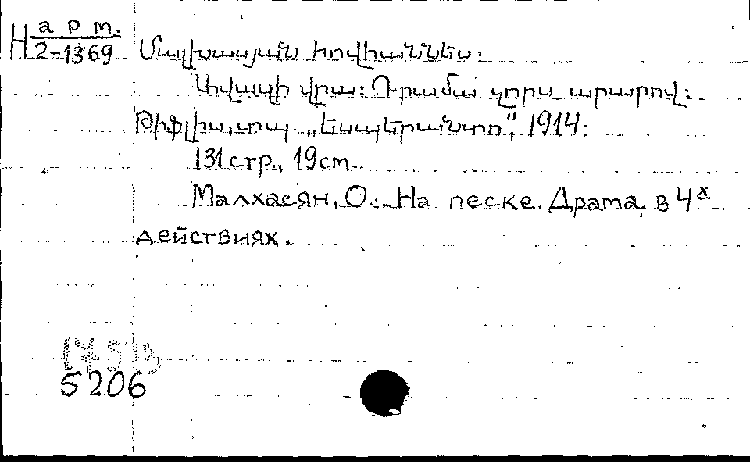 арт.
Н 2-1369 Մալխասյան Հովհաննես.
Ավազի վրա: Դրամա չորս արարով:
Թիֆլիս, տպ. „Էսպերանտո", 1914.
131стр., 19см.
Малхасян, О. На песке. Драма в 4х
действиях.
5206